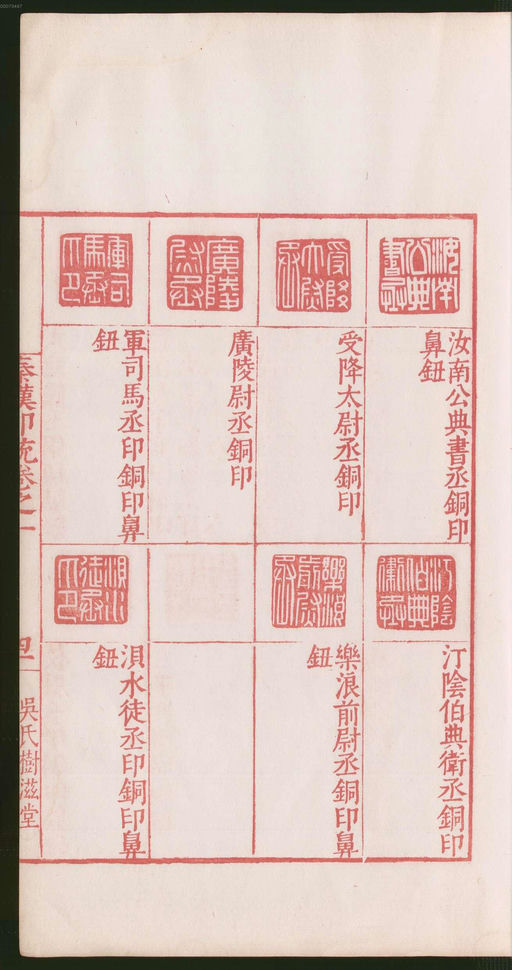 00079447
汝南公典書丞銅印
鼻鈕
受降太尉丞銅印
廣陵尉丞銅印
軍司馬丞印銅印鼻
鈕
汀陰伯典衛丞銅印
樂浪前尉丞銅印鼻
鈕
浿水徒丞印銅印鼻
鈕
秦漢印統卷之一
四
吳氏樹滋堂